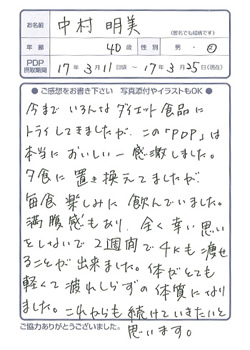 お名前 中村 明美
(匿名でも結構です)
年齢 40歳 性別 男・女
PDP摂取期間 17年3月11日頃〜17年3月25日(現在)
●ご感想をお書き下さい 写真添付やイラストもOK●
今まで いろんなダイエット食品に
トライしてきましたが、この「PDP」は
本当においしい−感激しました。
夕食に置き換えてましたが
毎食 楽しみに 飲んでいました。
満腹感もあり、全く辛い思い
をしないで 2週間で4Kも痩せ
ることが出来ました。体がとても
軽くて疲れしらずの体質になり
ました。これからも続けていきたいと
思います。
ご協力ありがとうございました。